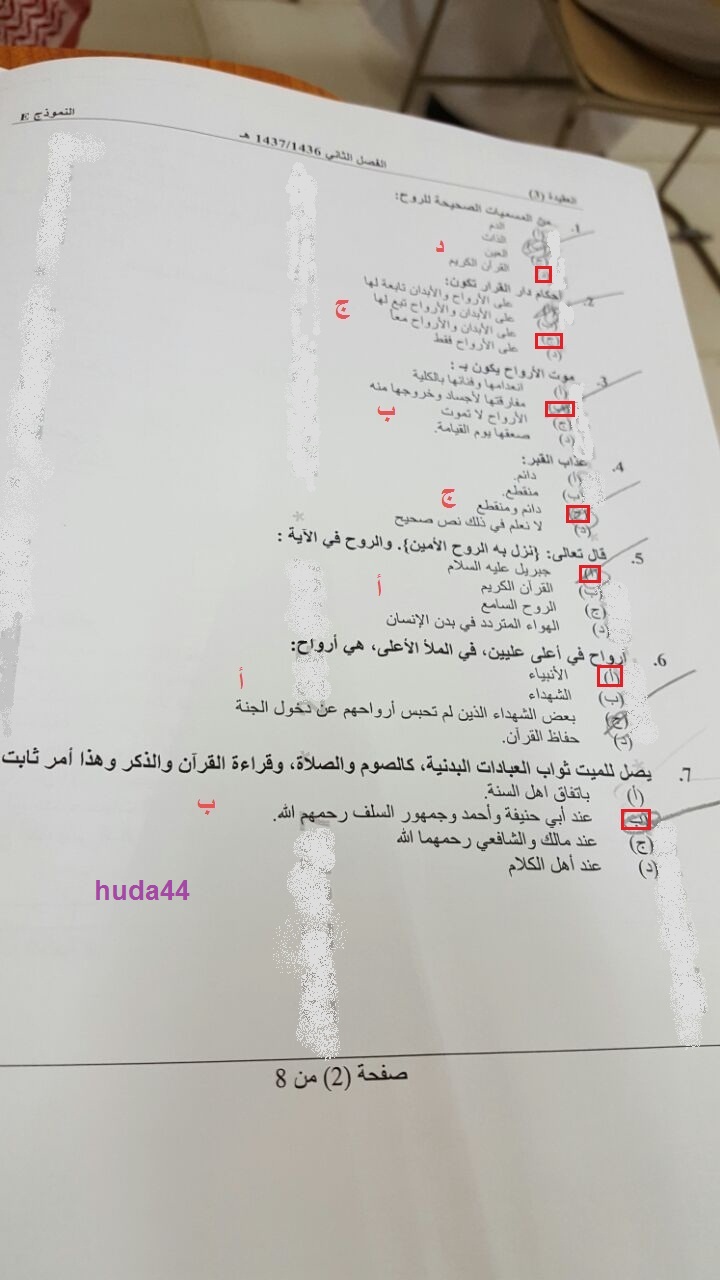 النموذج E
الفصل الثاني 1437/1436 هـ
العقيدة (3)
1. من المسميات الصحيحة للروح:
(أ) الدم
الذات
العين
القرآن الكريم
د
2. أحكام دار القرار تكون:
على الأرواح والأبدان تابعة لها
على الأبدان والأرواح تبع لها
(ج) على الأبدان والأرواح معا
(د) على الأرواح فقط
ج
3. موت الأرواح يكون بـ :
(أ) انعدامها وفنائها بالكلية
(ب) مفارقتها لأجساد وخروجها منه
(ج) الأرواح لا تموت
(د) صعقها يوم القيامة.
ب
4. عذاب القبر:
(أ) دائم.
(ب) منقطع.
(ج) دائم ومنقطع
(د) لا نعلم في ذلك نص صحيح
ج
5. قال تعالى: {نزل به الروح الأمين}. والروح في الآية :
(أ) جبريل عليه السلام
(ب) القرآن الكريم
(ج) الروح السامع
(د) الهواء المتردد في بدن الإنسان
أ
6. أرواح في أعلى عليين، في الملأ الأعلى، هي أرواح:
(أ) الأنبياء
(ب) الشهداء
(ج) بعض الشهداء الذين لم تحبس أرواحهم عن دخول الجنة
(د) حفاظ القرآن.
أ
7. يصل للميت ثواب العبادات البدنية، كالصوم والصلاة، وقراءة القرآن والذكر وهذا أمر ثابت
(أ) باتفاق اهل السنة.
(ب) عند أبي حنيفة وأحمد وجمهور السلف رحمهم الله.
(ج) عند مالك والشافعي رحمهما الله
(د) عند أهل الكلام
ب
huda44
صفحة (2) من 8